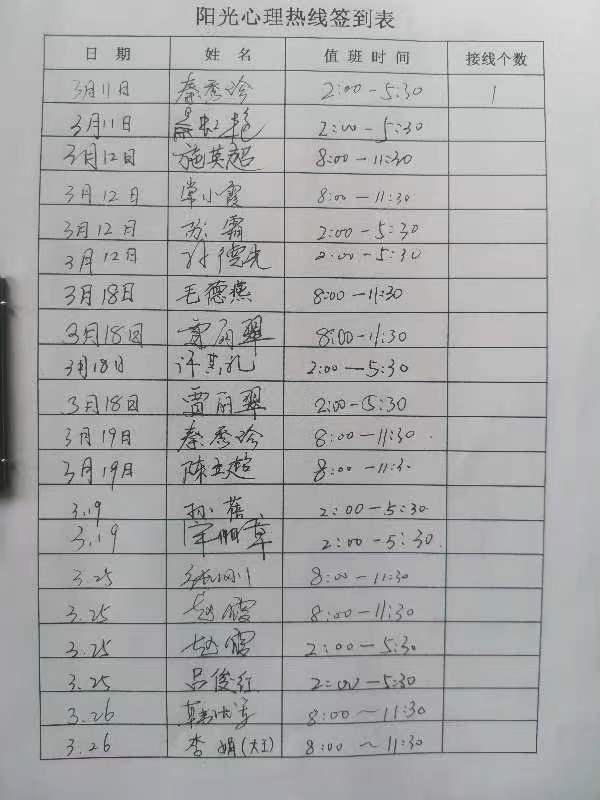 阳光心理热线签到表
日 期 姓 名 值 班 时 间 接线个数
3月11日 秦秀玲 2:00-5:30 1
3月11日 2:00-5:30
3月12日 施英超 8:00-11:30
3月12日 常小霞 8:00-11:30
3月12日 苏霜 2:00-5:30
3月12日 2:00-5:30
3月18日 毛德燕 8:00-11:30
3月18日 贾丽翠 8:00-11:30
3月18日 许其孔 2:00-5:30
3月18日 贾丽翠 2:00-5:30
3月19日 秦秀玲 8:00-11:30
3月19日 陈立超 8:00-11:30
3.19 孙蓓 2:00-5:30
3.19 2:00-5:30
3.25 8:00-11:30
3.25 赵霞 8:00-11:30
3.25 赵霞 2:00-5:30
3.25 吕俊红 2:00-5:30
3.26 8:00~11:30
3.26 李娟(大王) 8:00~11:30